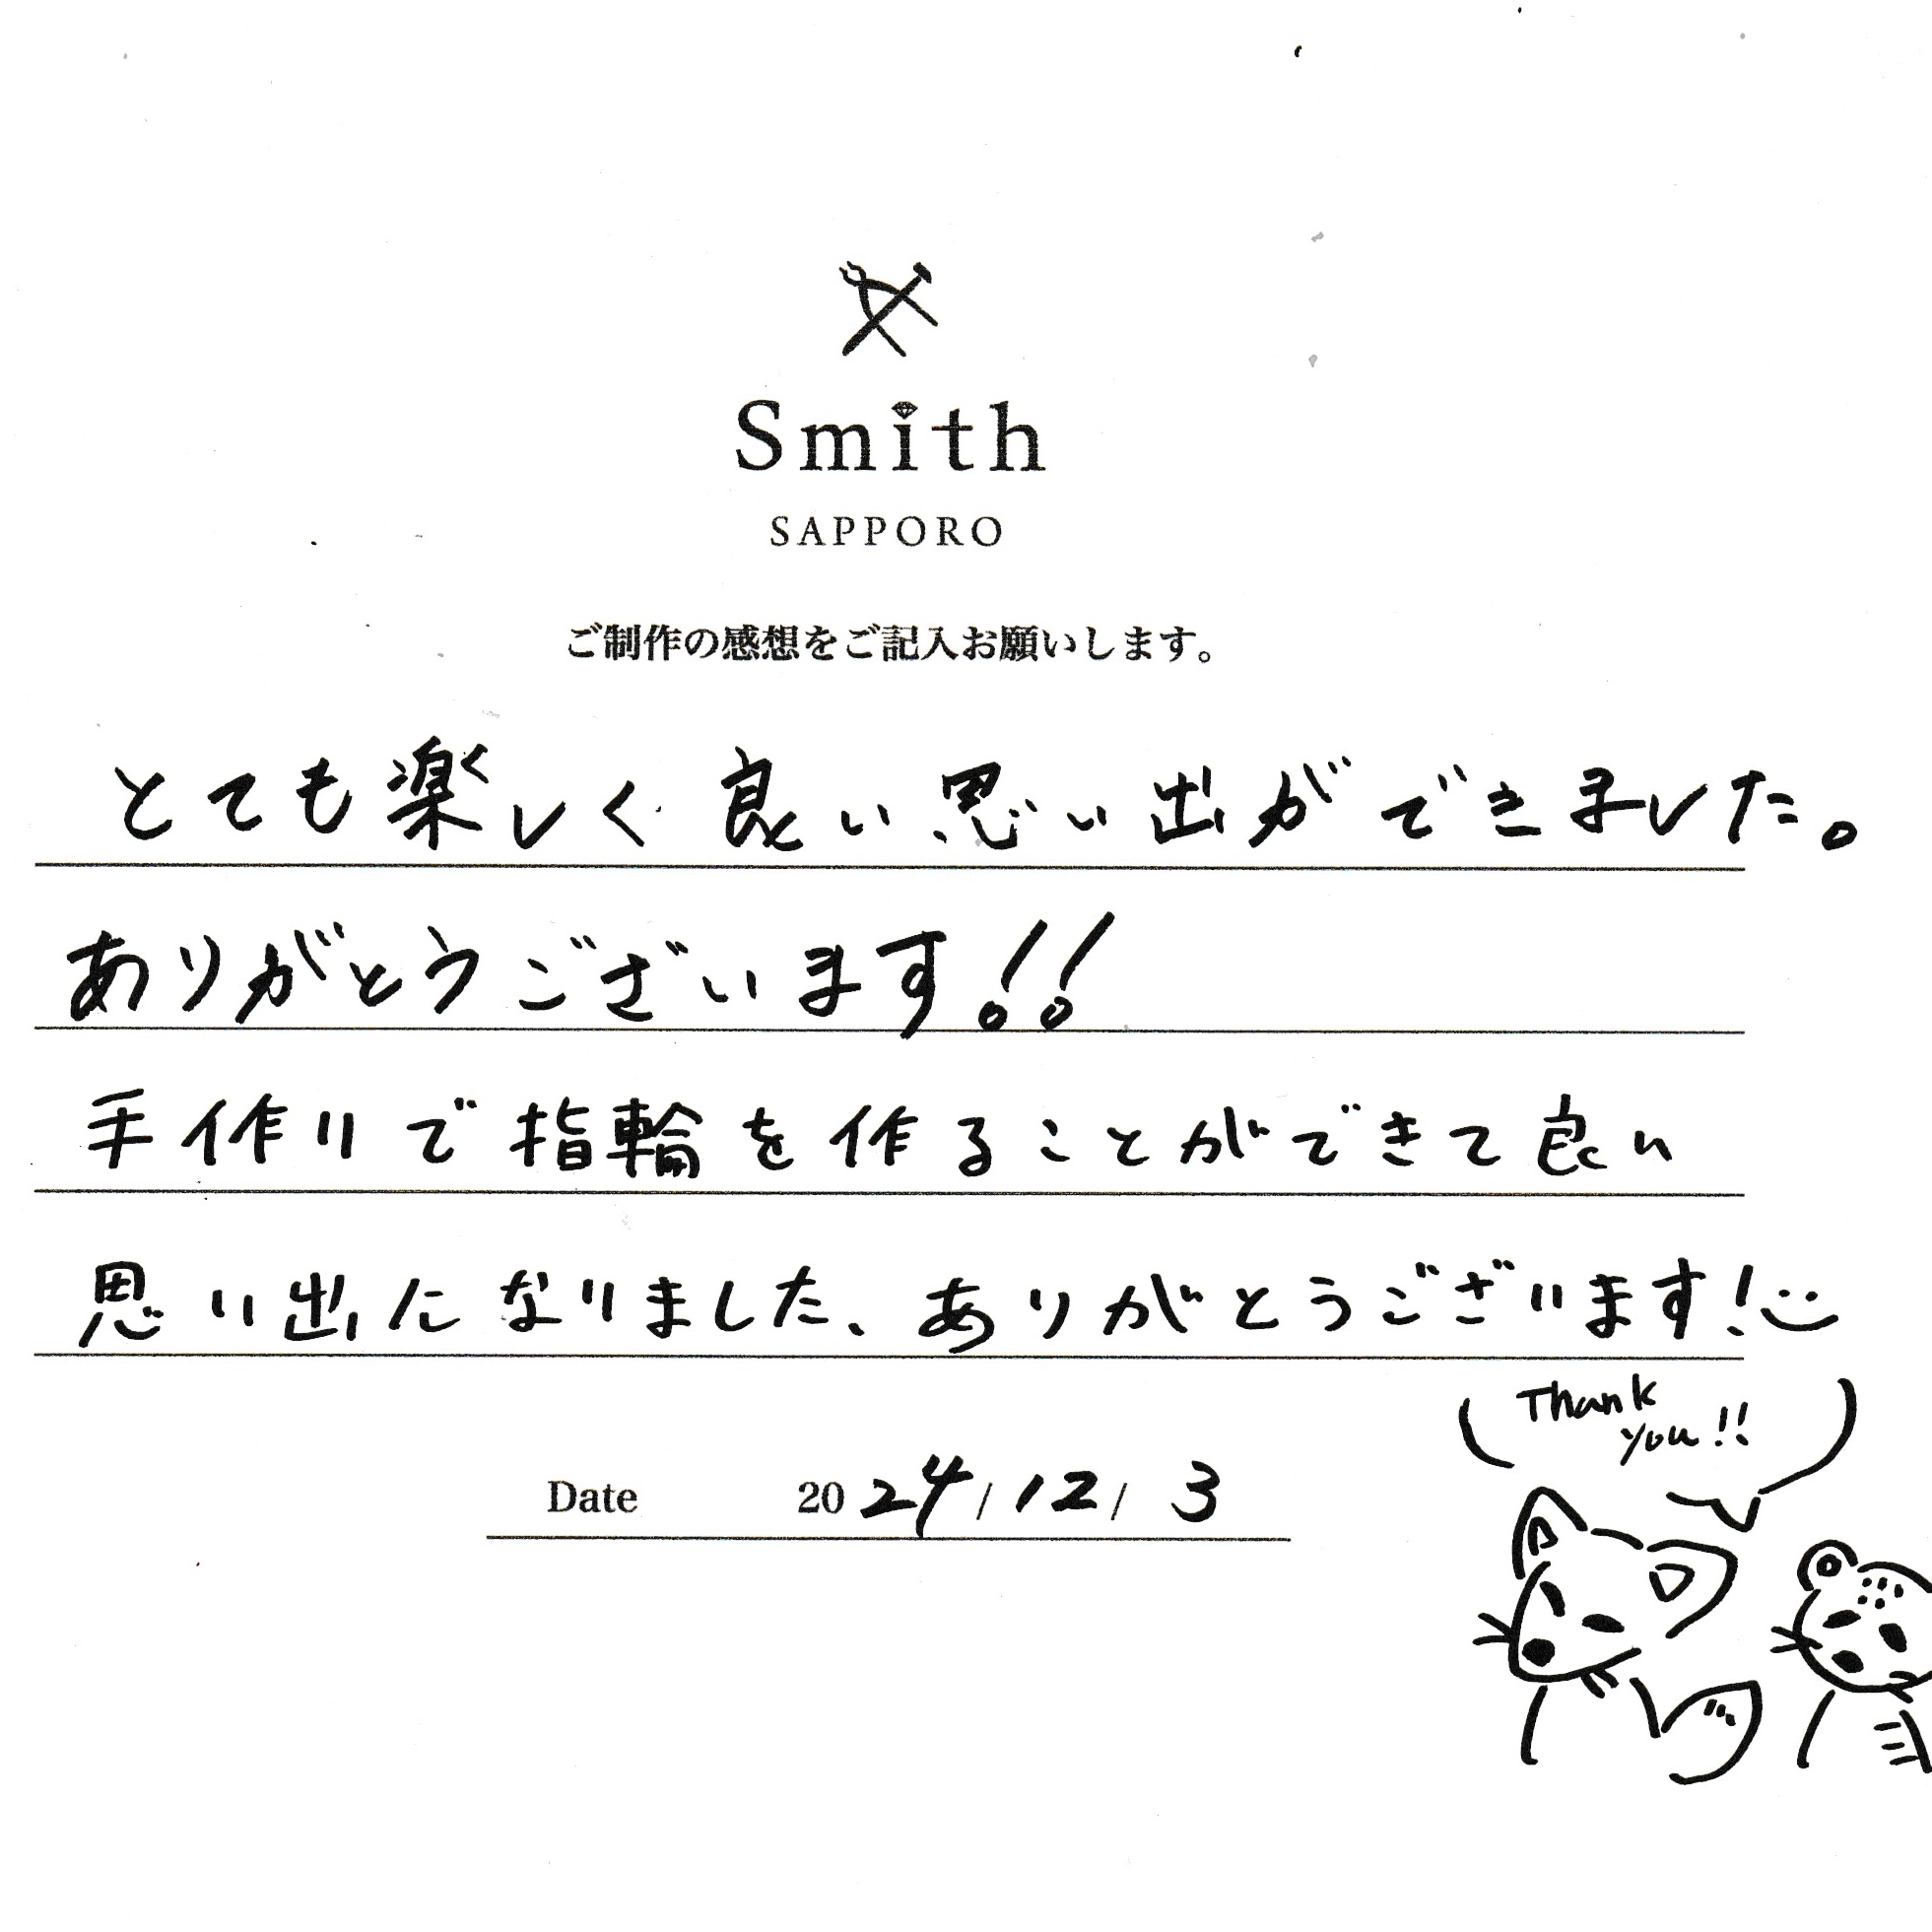 Smith
SAPPORO
ご制作の感想をご記入お願いします。
とても楽しく良い思い出ができました。
ありがとうございます!!
手作りで指輪を作ることができて良い
思い出になりました、ありがとうございます!
Thank
you!!
Date 2024/12/3